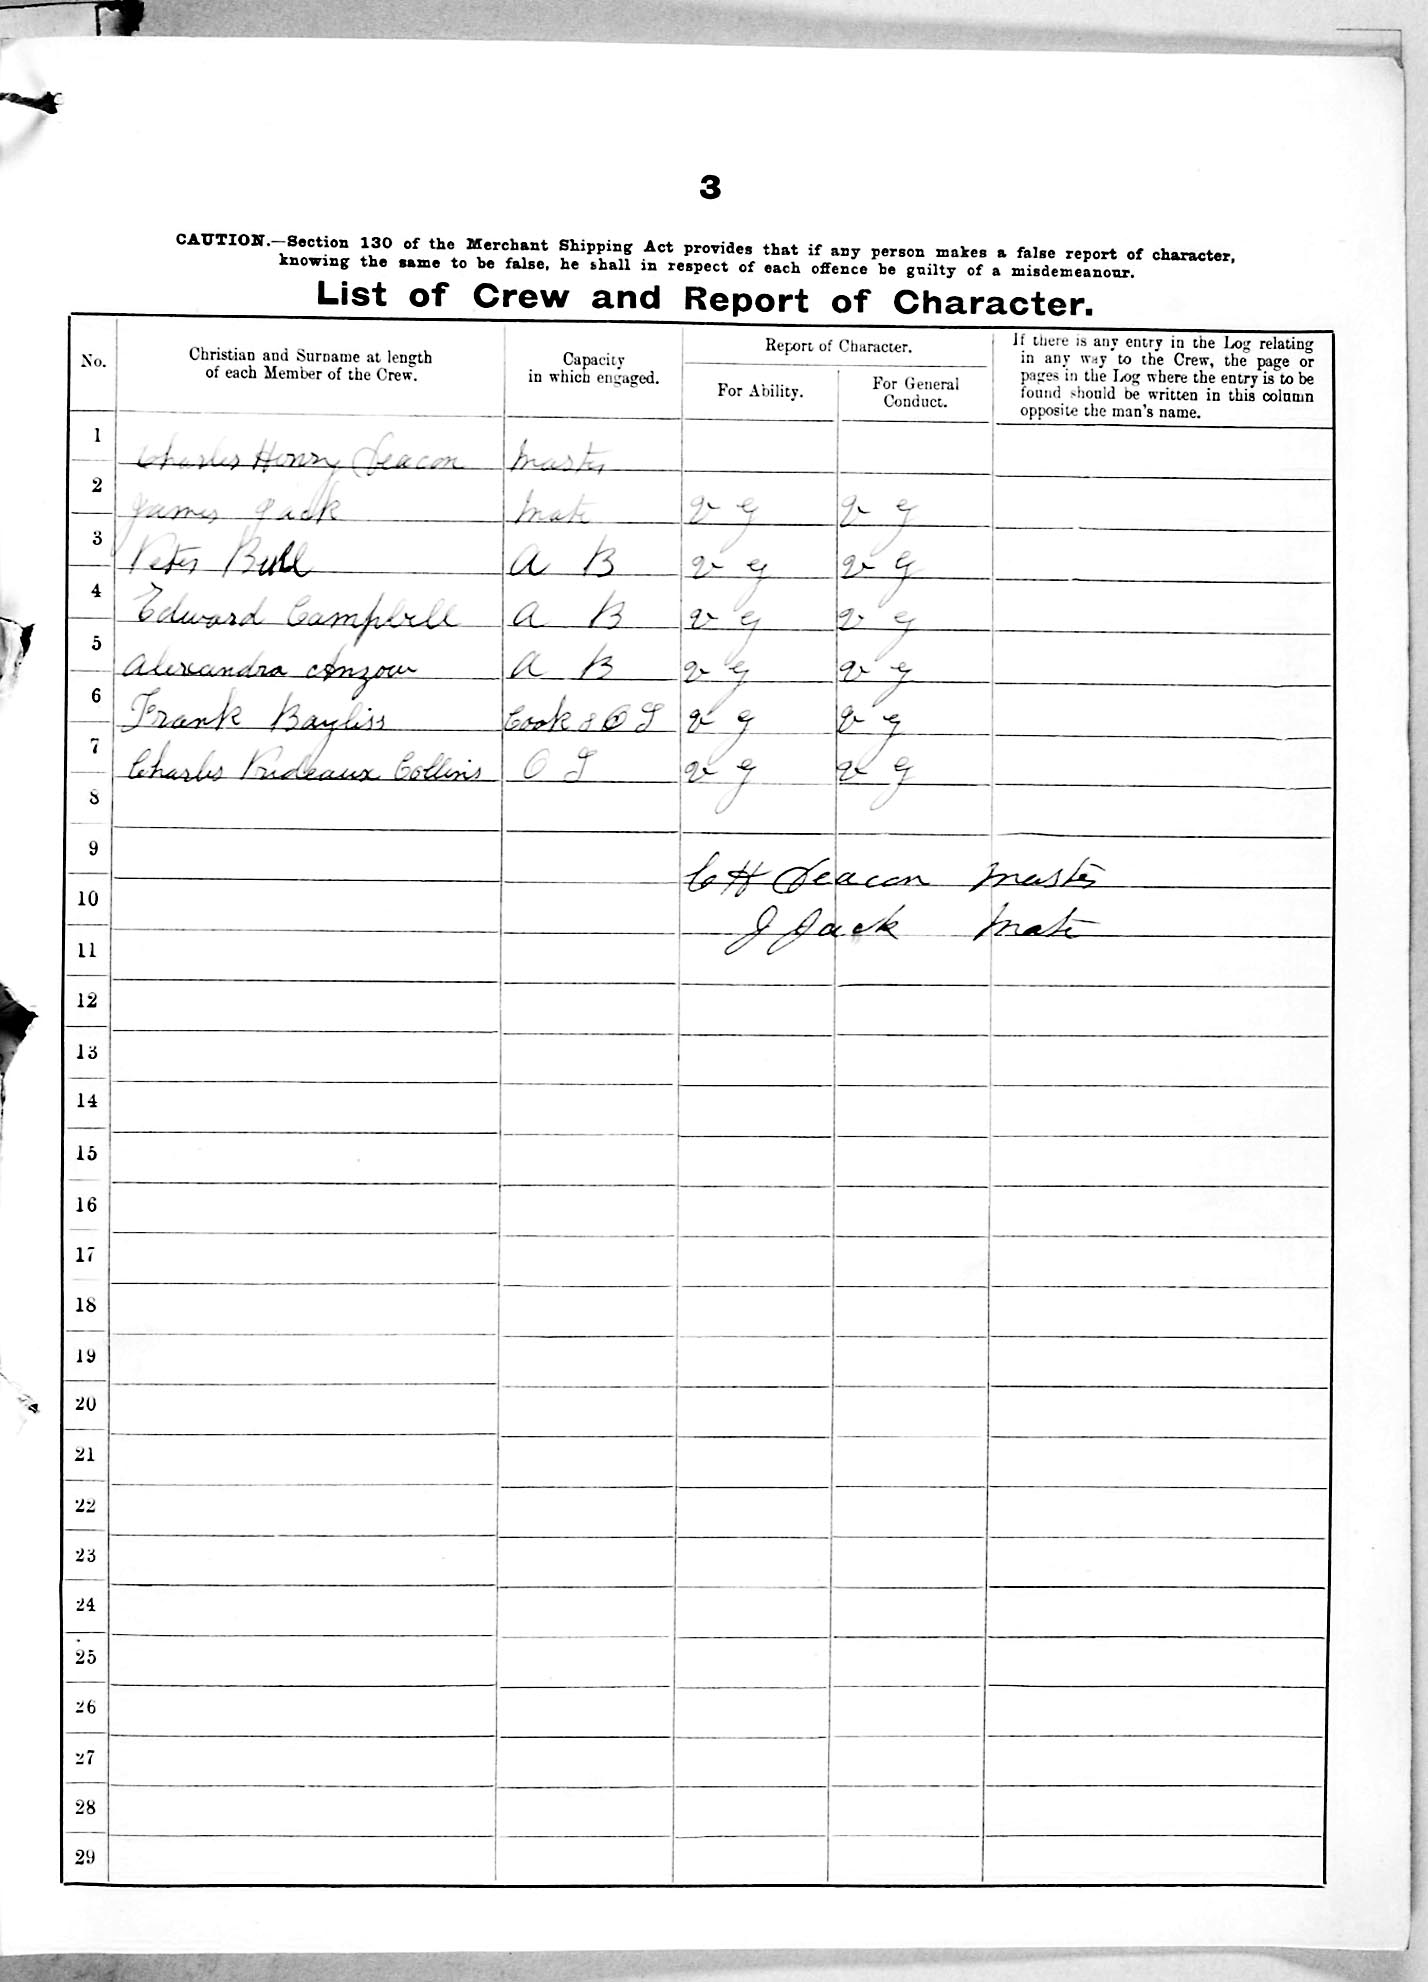 3
CAUTION.—Section 130 of the Merchant Shipping Act provides that if any person makes a false report of character,
knowing the same to be false, he shall in respect of each offence be guilty of a misdemeanour.
List of Crew and Report of Character.
No.
Christian and Surname at length
of each Member of the Crew.
Capacity
in which engaged.
Report of Character.
For Ability.
For General
Conduct.
If there is any entry in the Log relating
in any way to the Crew, the page or
pages in the Log where the entry is to be
found should be written in this column
opposite the man's name.
1 Charles Henry Deacon Master
2 James Jack Mate v g v g
3 Peter Bull A B v g v g
4 Edward Campbell A B v g v g
5 Alexandra Anzow A B v g v g
6 Frank Bayliss Cook & O S v g v g
7 Charles Prideaux Collins O S v g v g
8
9 C H Deacon Master
10 J Jack Mate
11
12
13
14
15
16
17
18
19
20
21
22
23
24
25
26
27
28
29